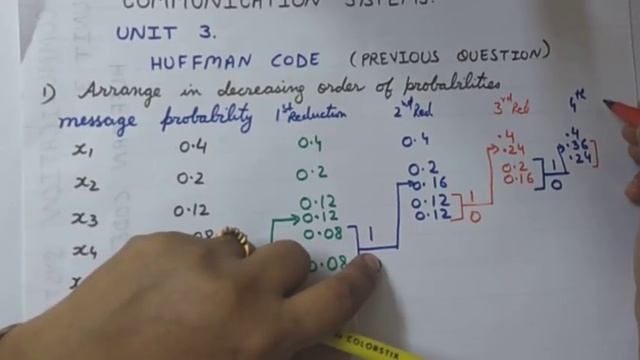 COMMUNICATION SYSTEMS.
UNIT 3.
HUFFMAN CODE (PREVIOUS QUESTION)
1) Arrange in decreasing order of probabilities
message probability 1st Reduction 2nd Red 3rd Red 4th
x1 0.4 0.4 0.4 .4 .4
.24 .36
.24
x2 0.2 0.2 0.2 0.2 1
0.16 0.16 0
x3 0.12 0.12 0.12 1
0.12 0.12 0
x4 0.08 0.08 1
x 0.08
COLORSTIX